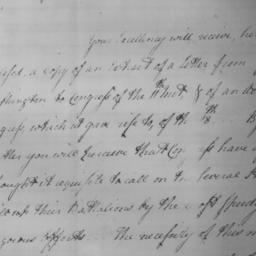 Your Excellency will receive, he
a copy of an extract of a letter from
shington to Congress of the 11th Inst, & of an
gress which it gave rise to, of the 18
you will perceive that Con ss have
hought it to call on the several
their Battalions by the most speedy
gorous efforts The necessity of this m